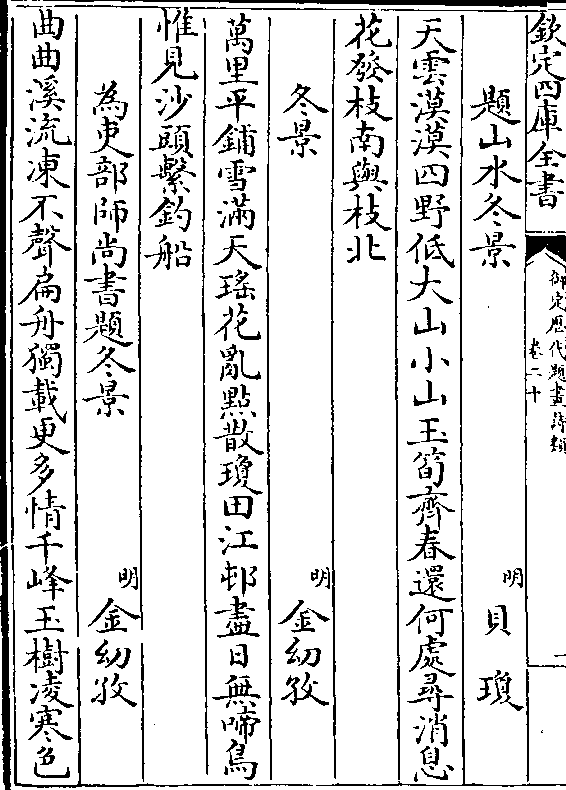 欽定四庫全書
御定歷代題畫詩類
卷二十
一
題山水冬景
明
貝瓊
天雲漠漠四野低大山小山玉筍齊春還何處尋消息
花發枝南與枝北
冬景
明
金幼孜
萬里平鋪雪滿天瑤花亂點散瓊田江邨盡日無啼鳥
惟見沙頭繫釣船
為吏部師尚書題冬景
明
金幼孜
曲曲溪流凍不聲扁舟獨載更多情千峰玉樹凌寒色